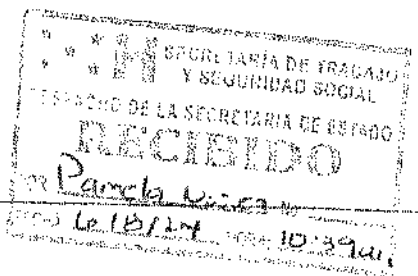 SECRETARÍA DE TRABAJO
Y SEGURIDAD SOCIAL
DESPACHO DE LA SECRETARIA DE ESTADO
RECIBIDO
POR Pamela No
FECHA HORA: 10:39